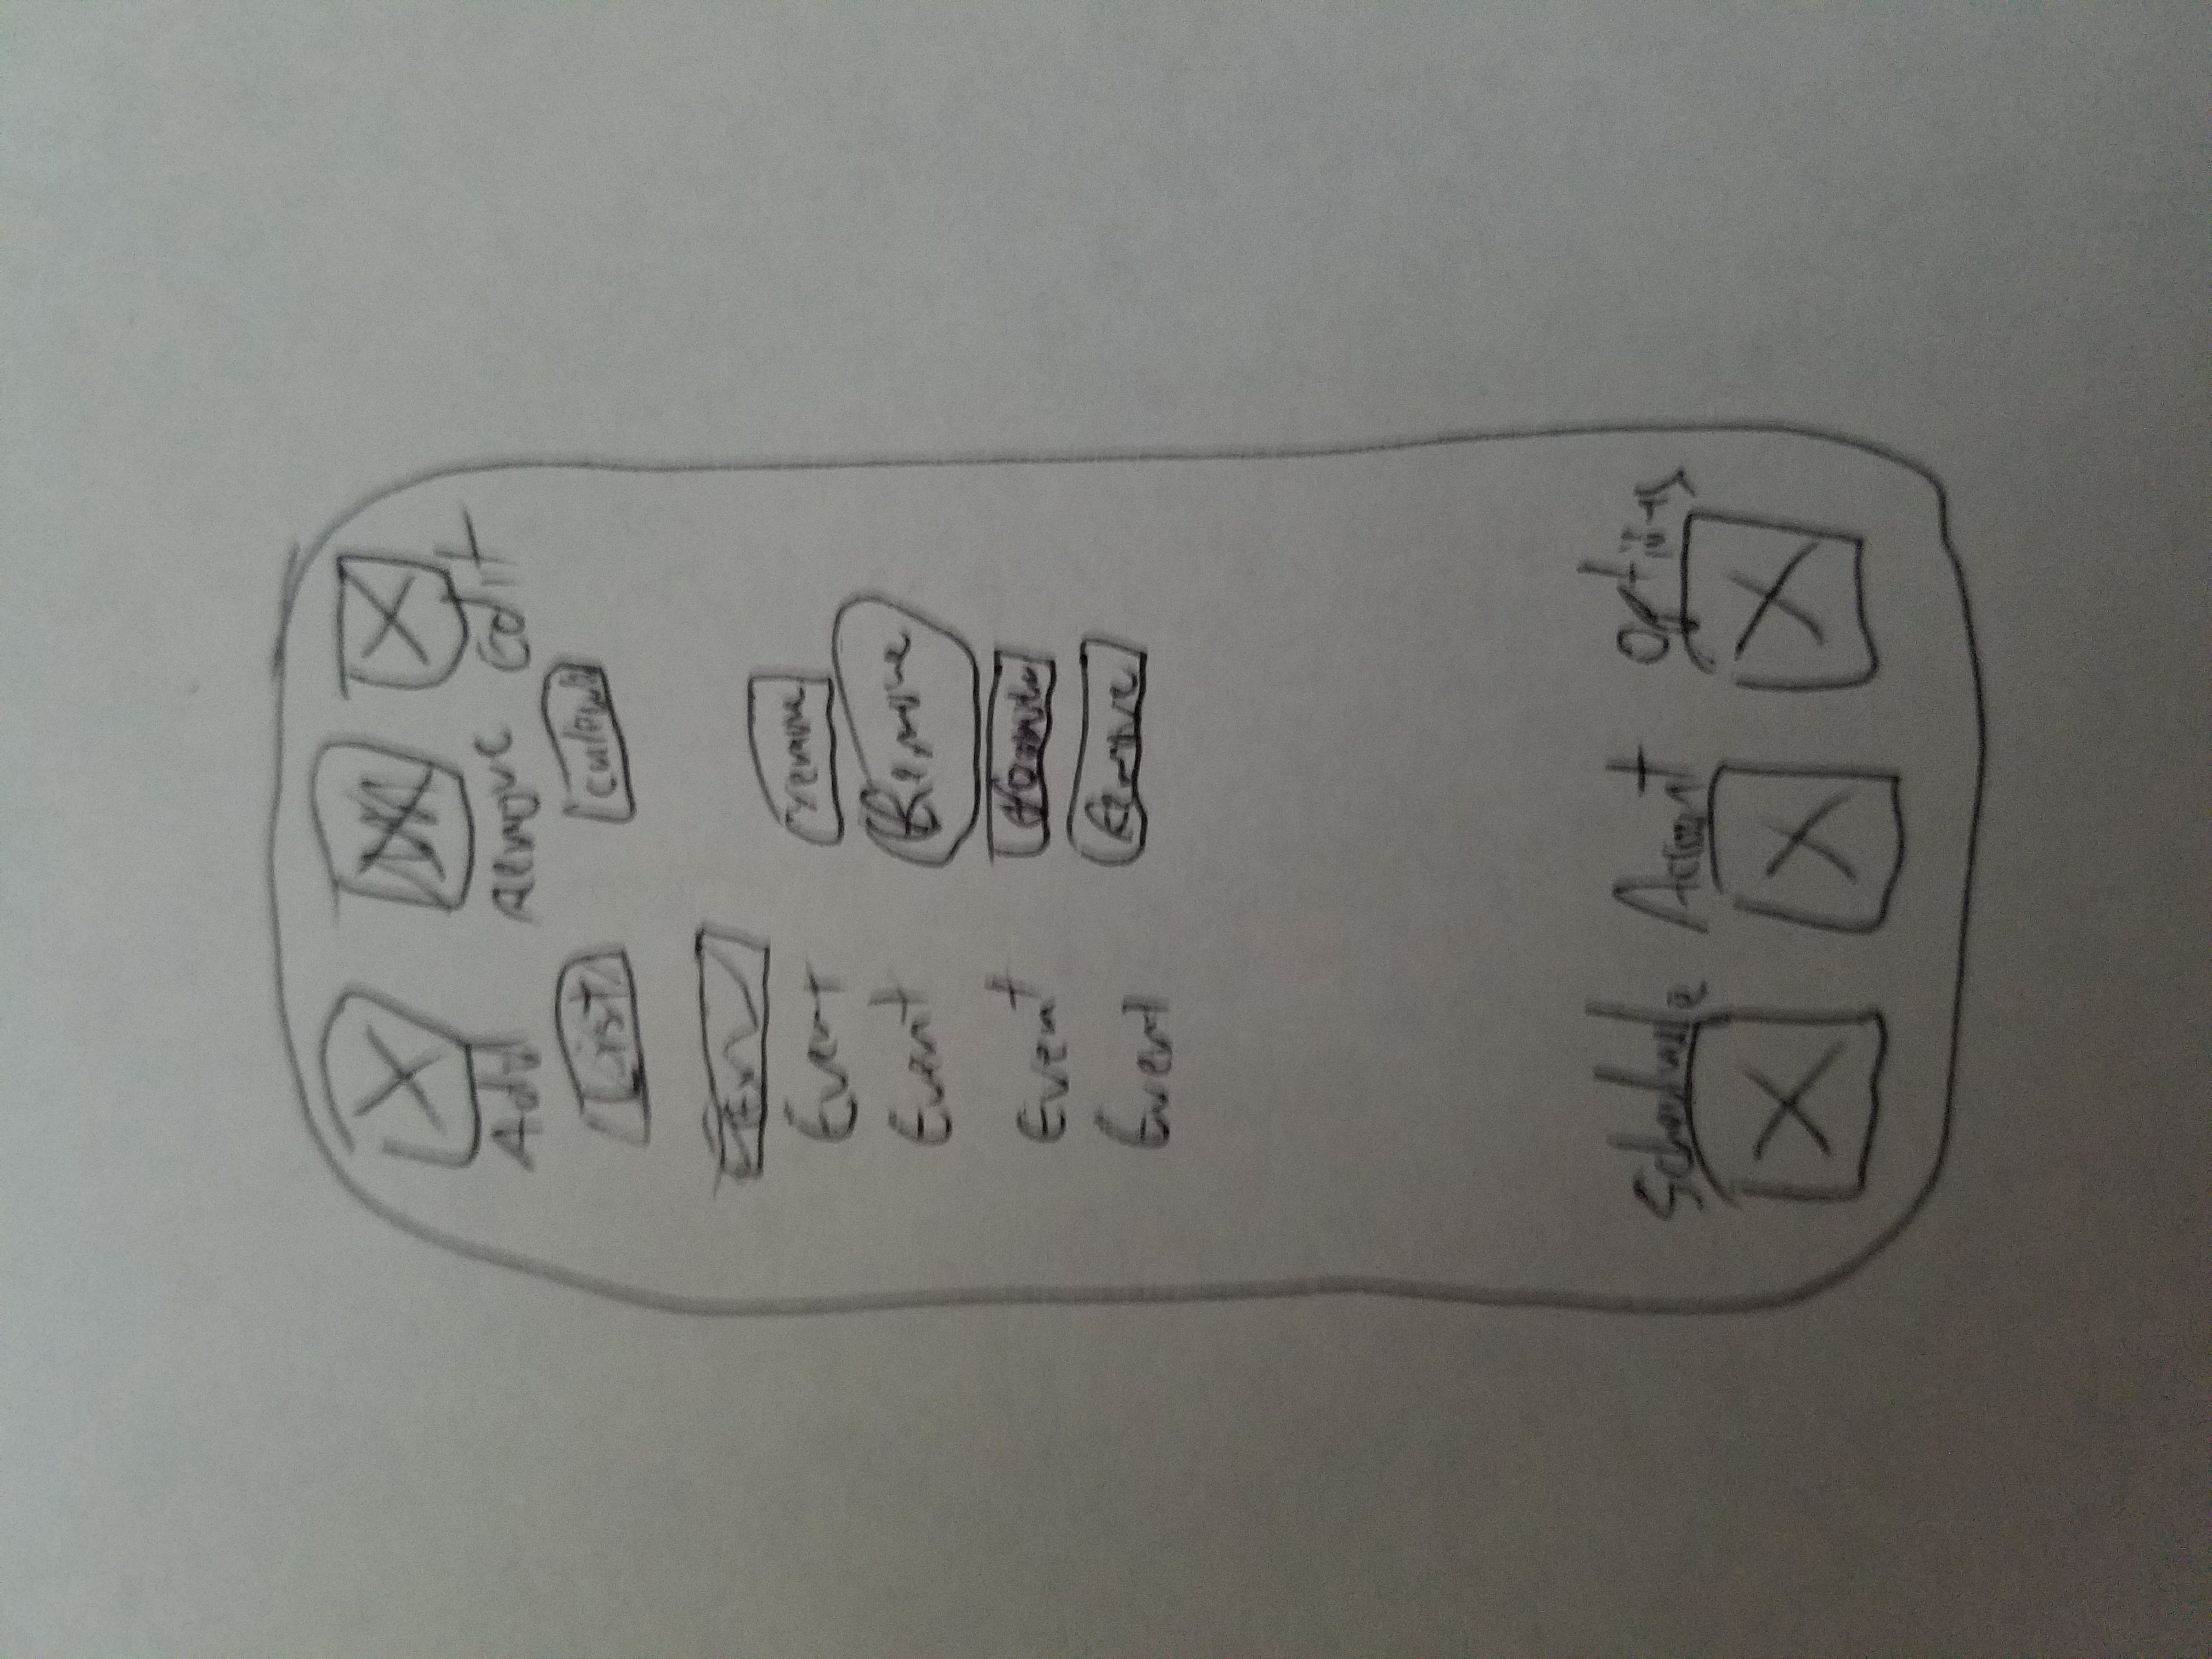 Add Remove Edit
List
Event remove
Event Remove
Event
Event Remove
Schedule Account Options